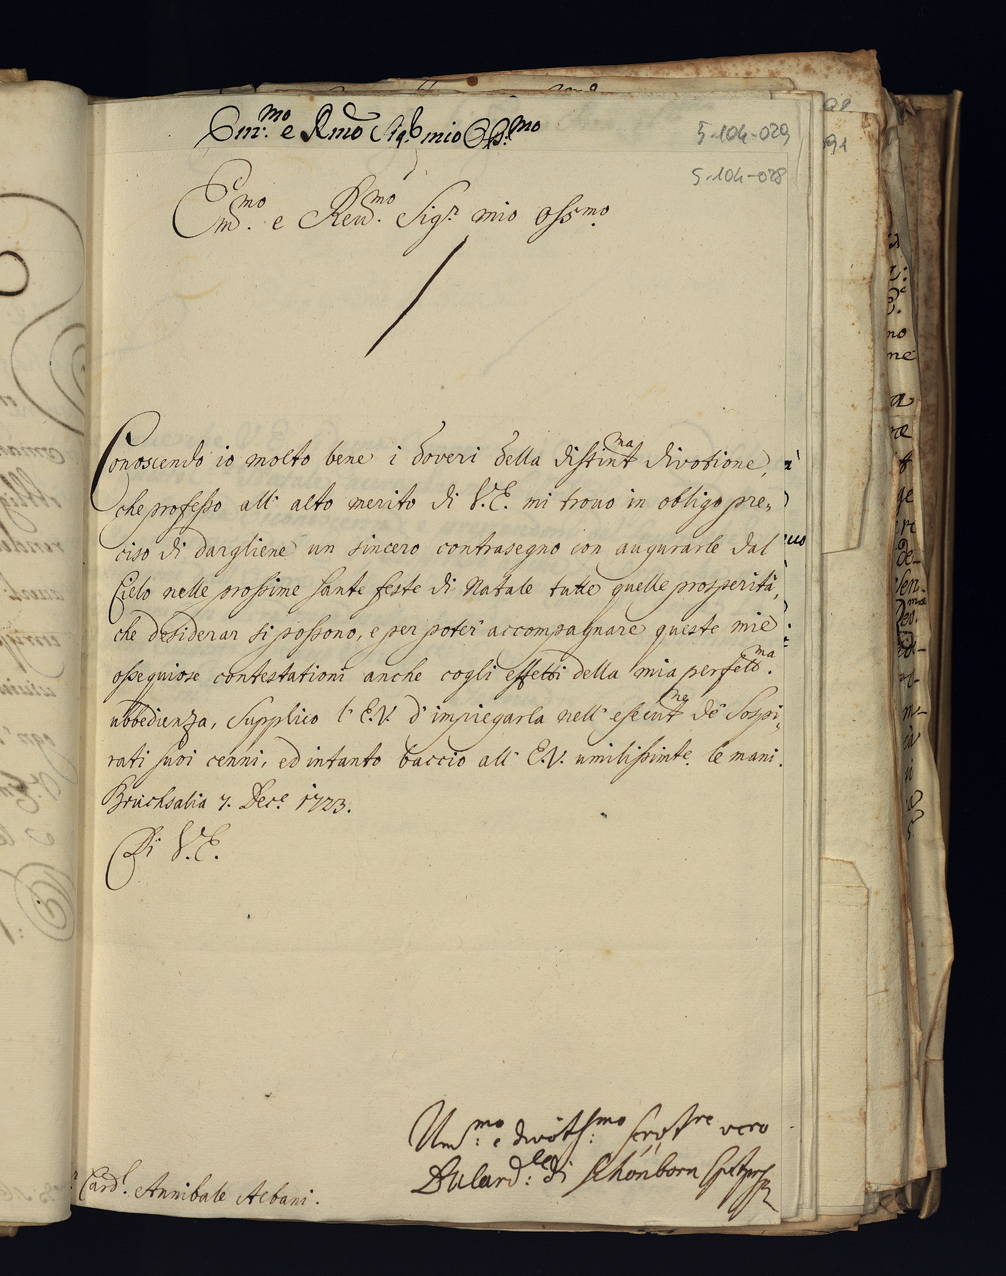 Em:mo e Rmo Sig:r mio Oss:mo
5-104-029
5-104-028
Em.mo e Reu.mo Sig.r mio oss.mo
Conoscendo io molto bene i doveri della distint.ma divotione,
che professo all' alto merito di V.E. mi trovo in obligo pre-
ciso di dargliene un sincero contrasegno con augurarle dal
Cielo nelle prossime sante feste di Natale tutte quelle prosperità,
che desiderar si possono, e per poter accompagnare queste mie
ossequiose contestationi anche cogli effetti della mia perfett.ma
ubbedienza, Supplico l' E.V. d' impiegarla nell' esecut.ne de' sospi-
rati suoi cenni, ed intanto baccio all' E.V. umilissimte. le mani.
Bruchsalia 7. Dec.e 1723.
Di V.E.
Um:mo e divotiss:mo ser:re vero
Card.l Annibale Albani.
Il Card:le di Schönborn